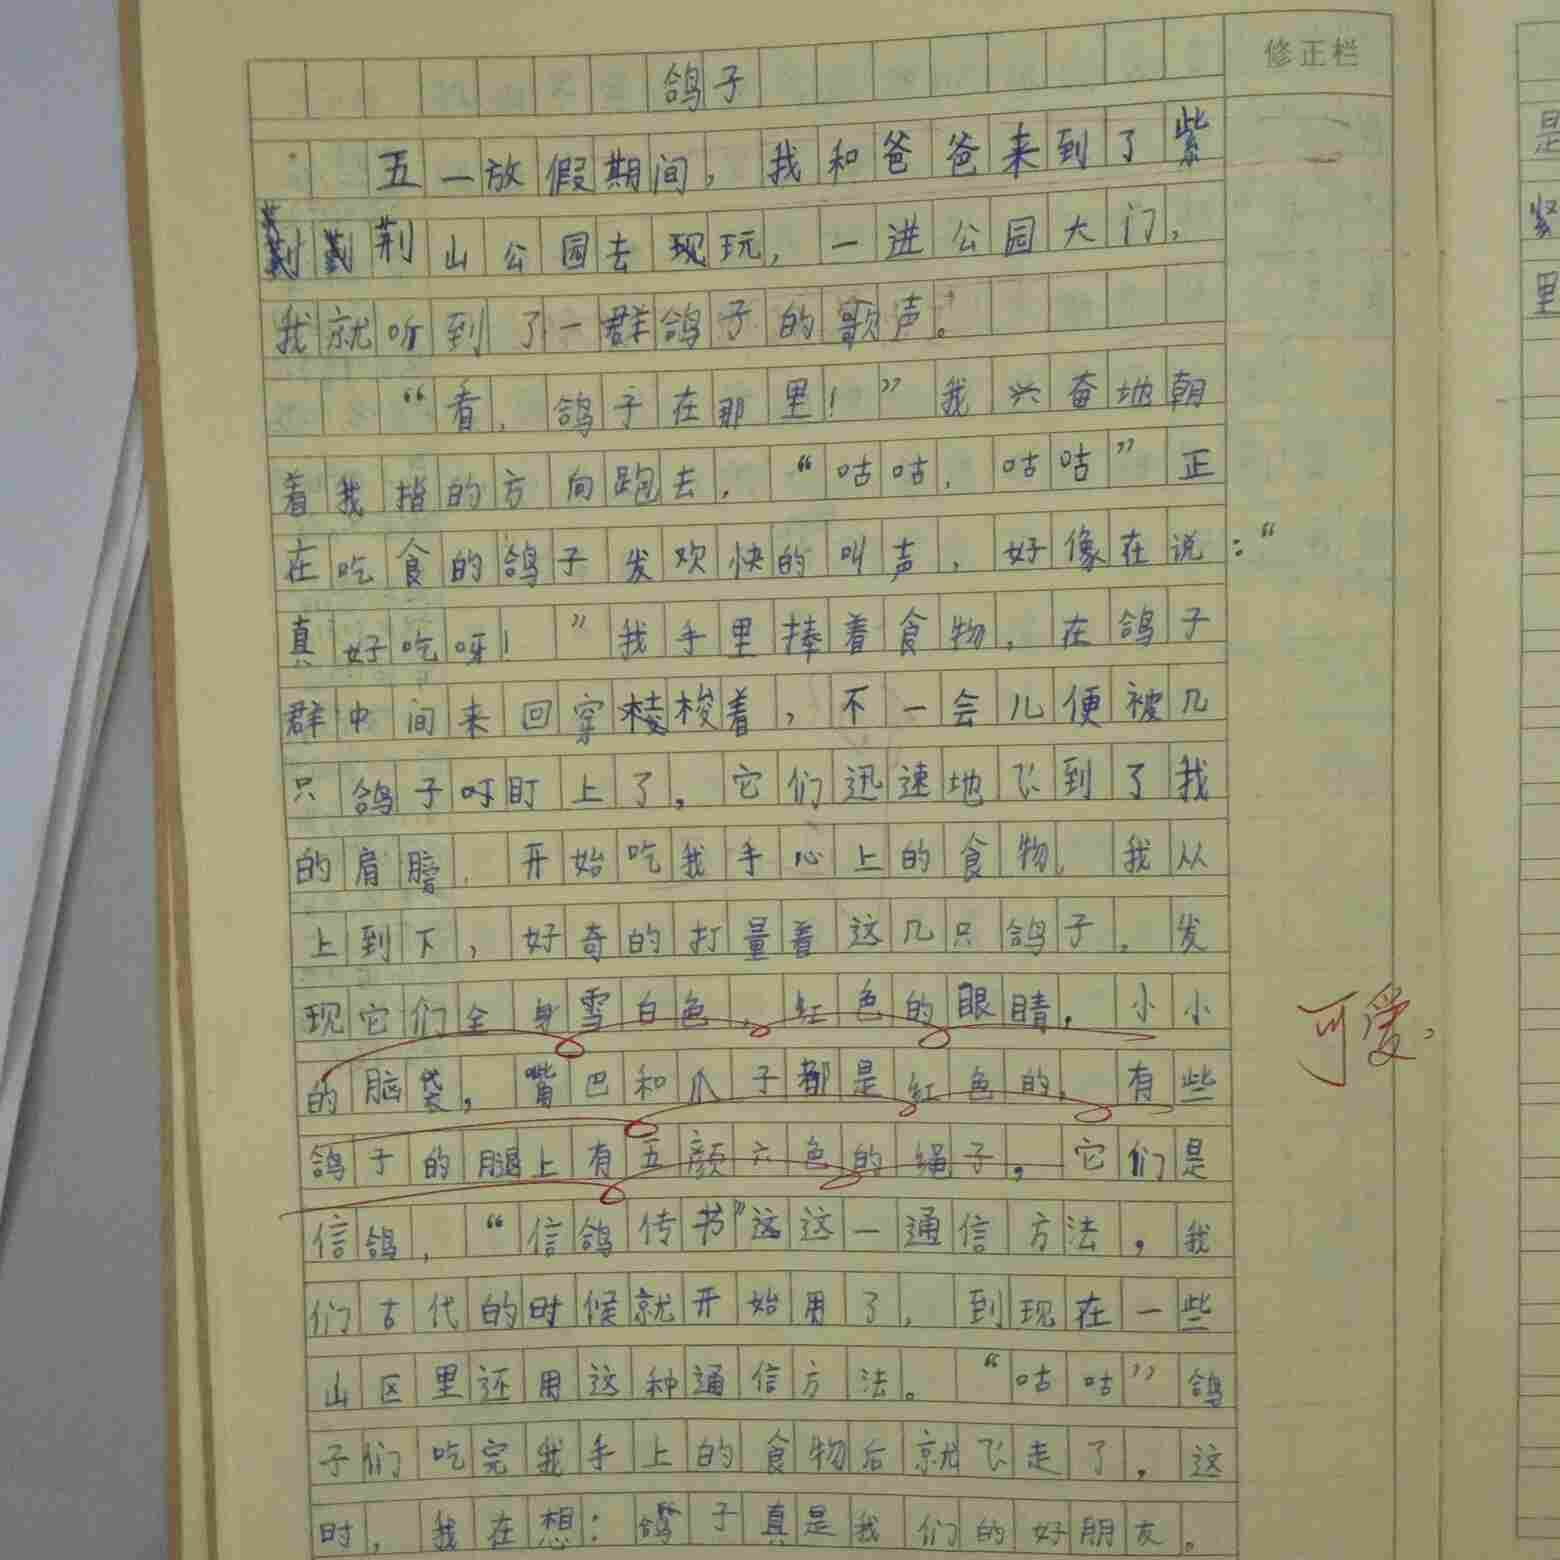 修正栏
鸽子
五一放假期间，我和爸爸来到了紫
荆山公园去玩，一进公园大门，
我就听到了一群鸽子的歌声。
“看，鸽子在那里！”我兴奋地朝
着我指的方向跑去，“咕咕，咕咕”正
在吃食的鸽子发欢快的叫声，好像在说：“
真好吃呀！”我手里捧着食物，在鸽子
群中间来回穿梭着，不一会儿便被几
只鸽子盯上了，它们迅速地飞到了我
的肩膀，开始吃我手心上的食物，我从
上到下，好奇的打量着这几只鸽子，发
现它们全身雪白色，红色的眼睛，小小
的脑袋，嘴巴和爪子都是红色的，有些
鸽子的腿上有五颜六色的绳子，它们是
信鸽，“信鸽传书”这这一通信方法，我
们古代的时候就开始用了，到现在一些
山区里还用这种通信方法。“咕咕”鸽
子们吃完我手上的食物后就飞走了，这
时，我在想：鸽子真是我们的好朋友。
可爱，
是
紧
里